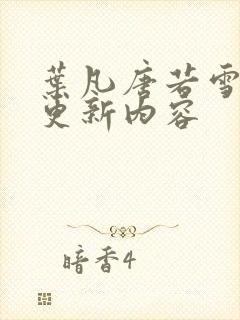 葉凡唐若雪
更新内容
暗香4